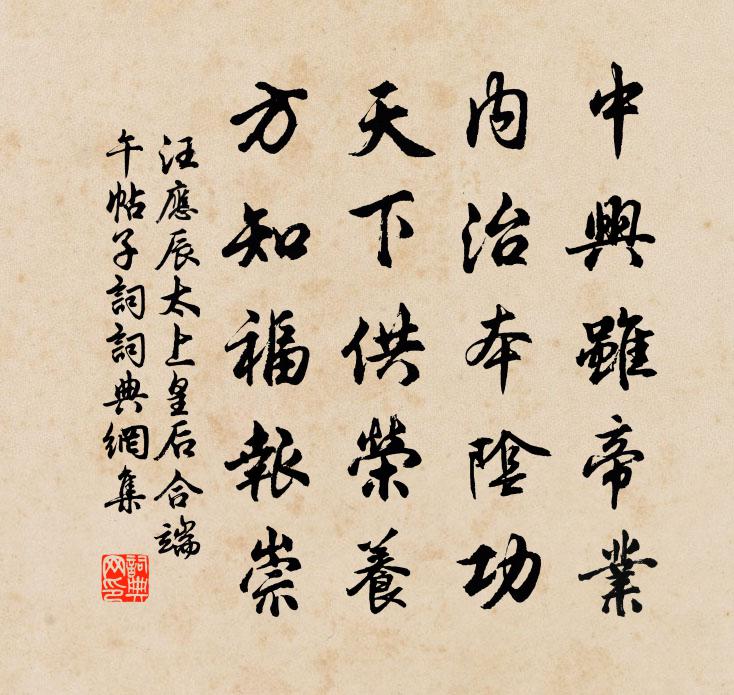 中興雖帝業
内治本陰功
天下供榮養
方知福報崇
汪應辰太上皇后合端
午帖子詞詞典網集
詞典网印